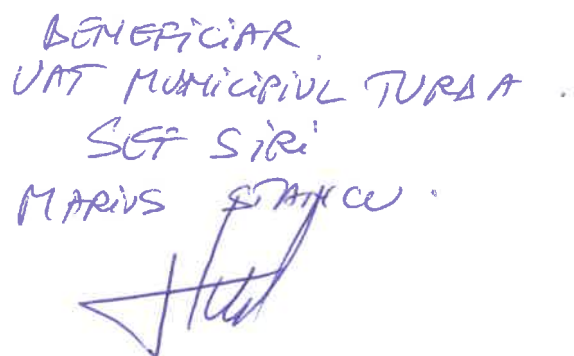 BENEFICIAR
UAT MUNICIPIUL TURDA.
SEF SIRI
MARIUS STANCU.